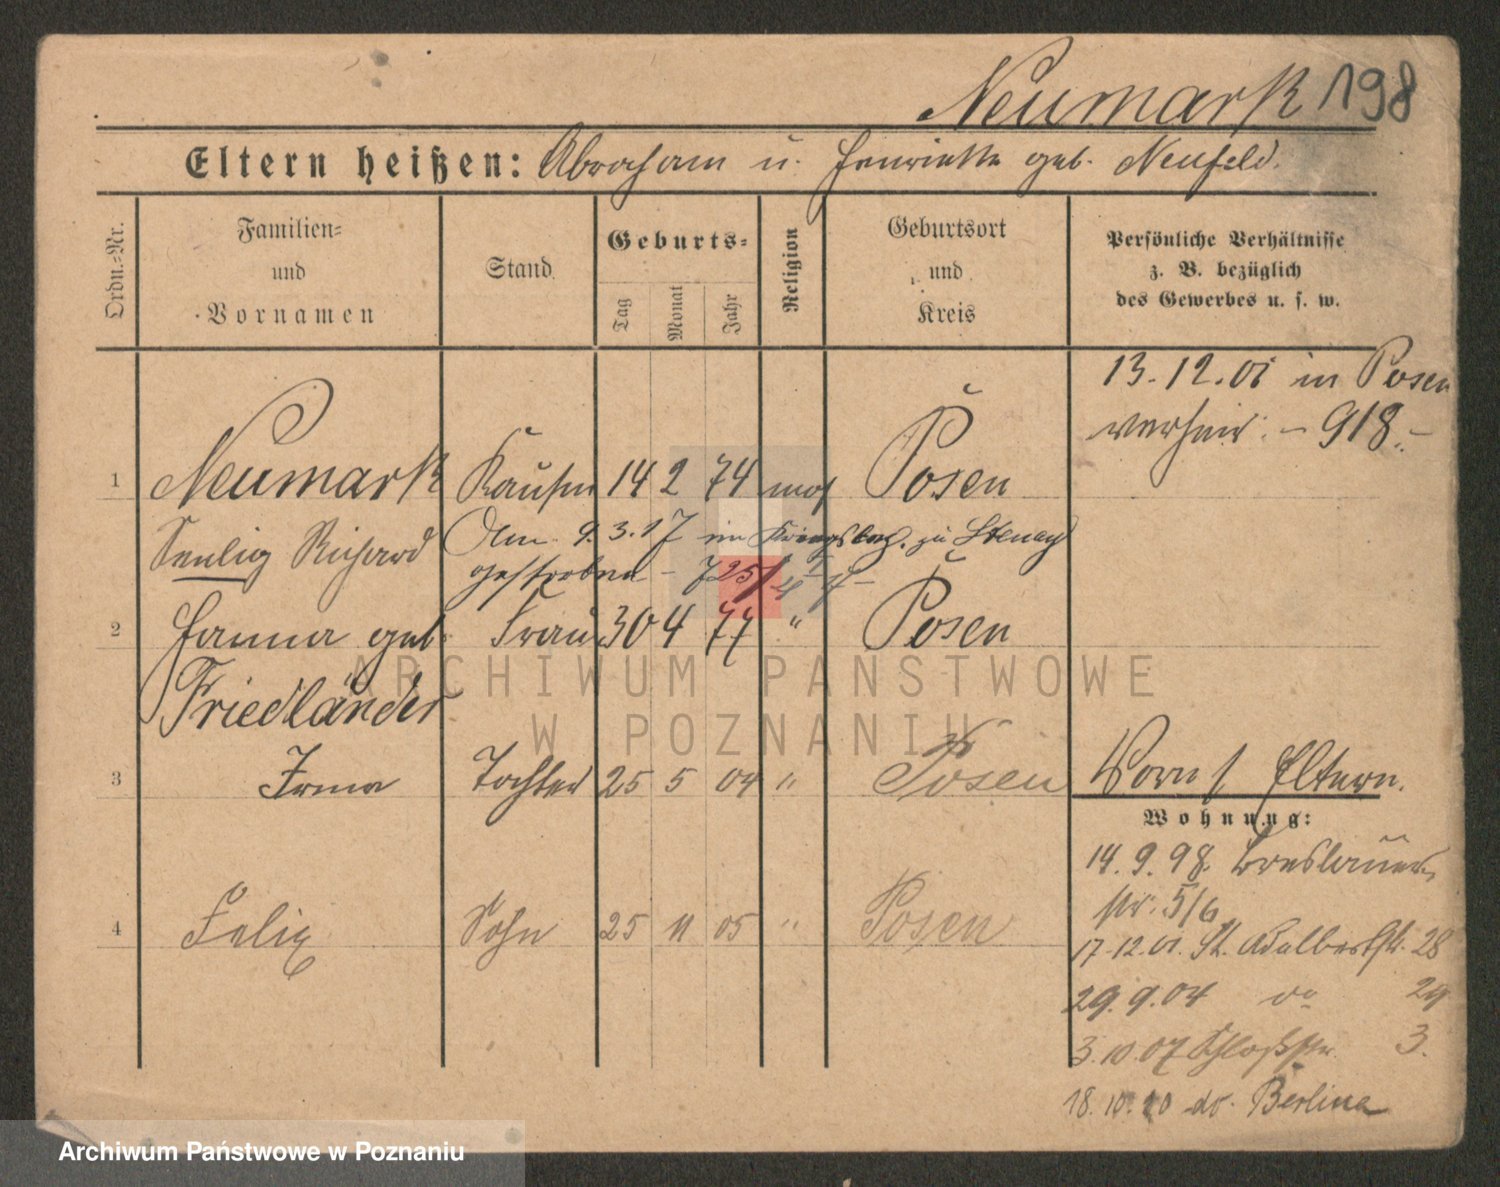 Neumark 198
Eltern heißen: Abraham u. Henriette geb. Neufeld.
Ordn.-Nr.
Familien-
und
Vornamen
Stand
Geburts-
Tag
Monat
Jahr
Religion
Geburtsort
und
Kreis
Persönliche Verhältnisse
z. B. bezüglich
des Gewerbes u. s. w.
13.12.01 in Posen
verheir. - 918.-
1 Neumark Kaufm 14 2 74 mos Posen
Seelig Richard
Am 9.3.17 im Kriegslaz. zu Stenay
gestorben - 725/
2 Hanna geb. Frau 30 4 77 " Posen
Friedländer
3 Irma Tochter 25 5 04 " Posen
4 Felix Sohn 25 11 05 " Posen
Vorm. s. Eltern.
Wohnung:
14.9.98. Breslauer
str. 5/6
17.12.01. St. Adalbertstr. 28
29.9.04 do 29
3.10.07 Schloßstr. 3.
18.10.20 do. Berlin
ARCHIWUM PAŃSTWOWE
W POZNANIU
Archiwum Państwowe w Poznaniu